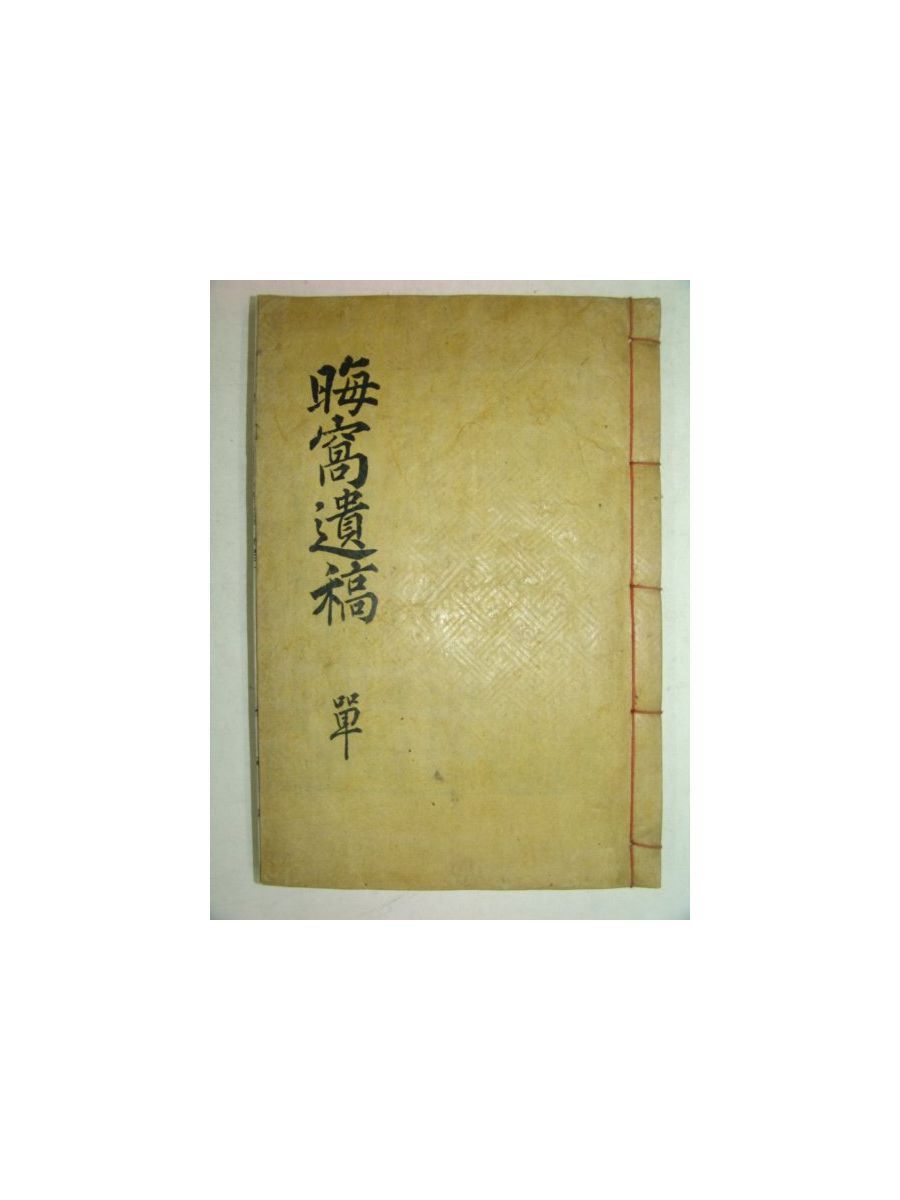 晦窩遺稿
單